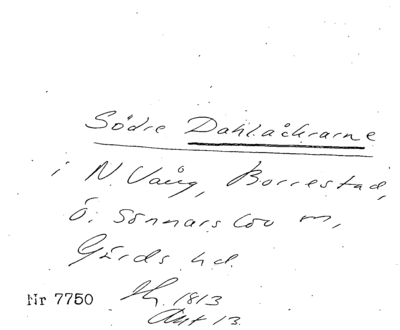 Södre Dahlåckrarne
i N. Vång, Borrestad,
Ö. Sönnarslöv sn,
Gärds hd.
Nr 7750 Sk. 1813
Akt 13.